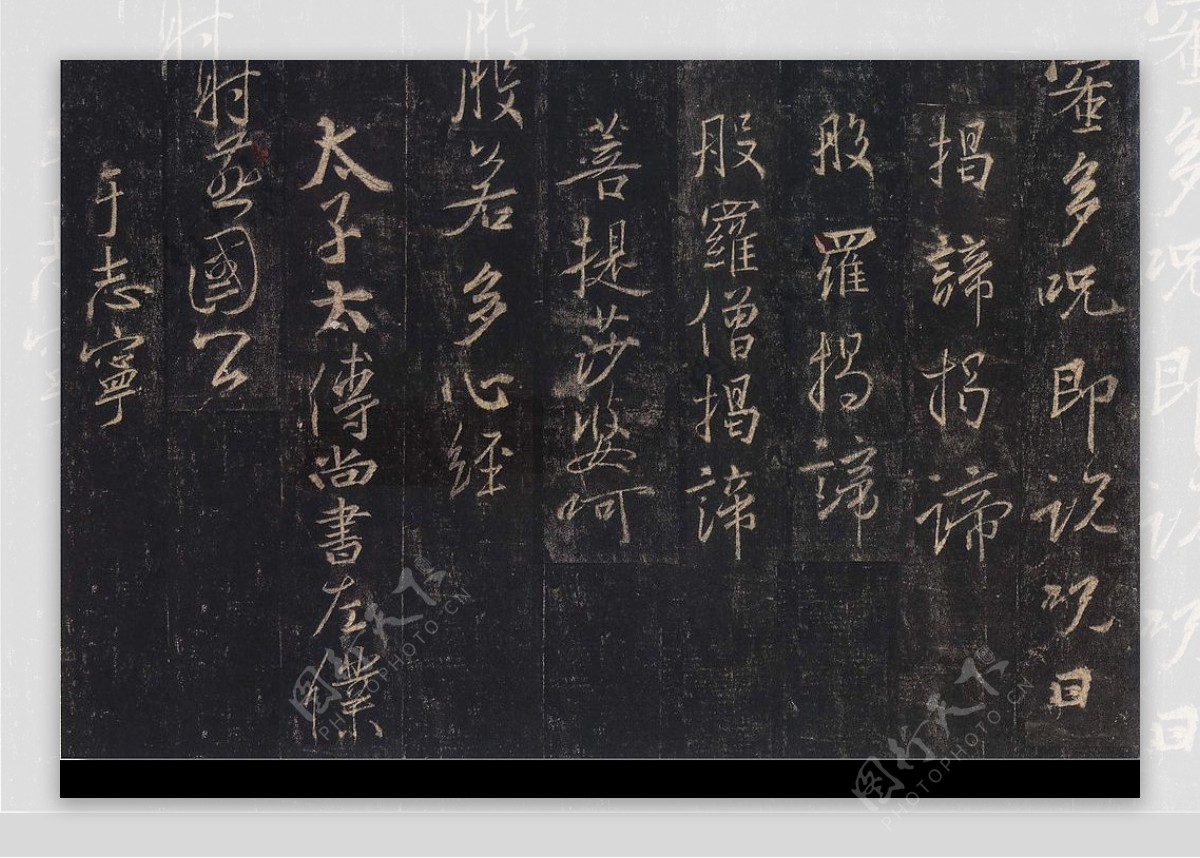 蜜多呪即說呪曰
揭諦揭諦
般羅揭諦
般羅僧揭諦
菩提莎婆呵
般若多心經
太子太傅尚書左僕
射燕國公
于志寧
图行天下
PHOTOPHOTO.CN
图行天下
PHOTOPHOTO.CN